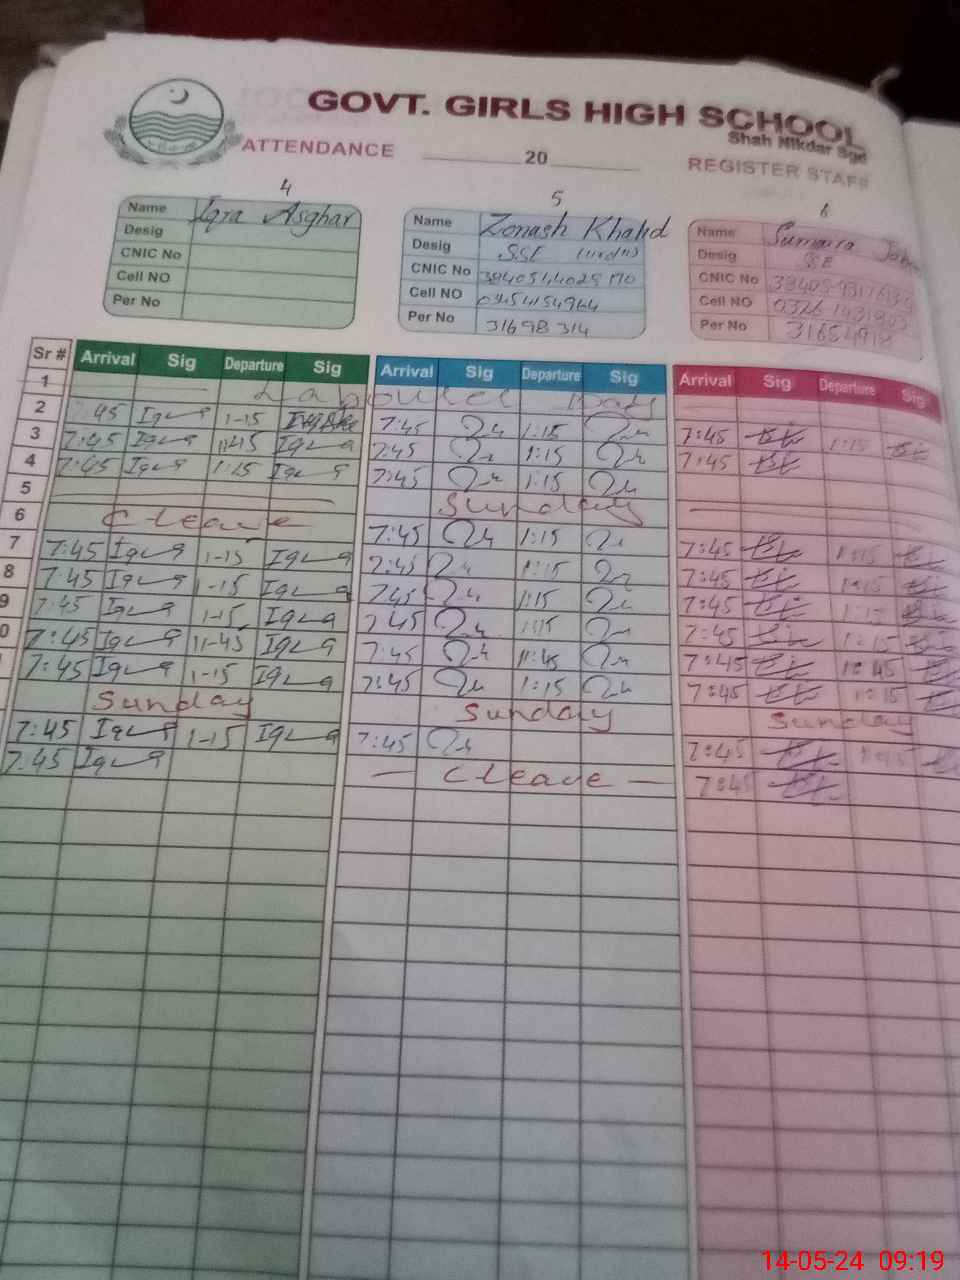 GOVT. GIRLS HIGH SCHOOL
Shah Nikdar Sgd
ATTENDANCE 20 REGISTER STAFF
4 5 6
Name Iqra Asghar Name Zonash Khalid Name Sumaira
Desig Desig SSE (Urdu) Desig SSE
CNIC No CNIC No CNIC No
Cell NO Cell NO 03454154964 Cell NO
Per No Per No 31698314 Per No
Sr # Arrival Sig Departure Sig Arrival Sig Departure Sig Arrival Sig Departure Sig
1 Labour Day
2 7:45 Iqra 1-15 7:45 1:15 7:45 1:15
3 7:45 Iqra 11:45 Iqra 7:45 1:15 7:45
4 7:45 Iqra 1:15 Iqra 7:45 1:15
5 Sunday
6 C leave 7:45 1:15 7:45 1:15
7 7:45 Iqra 1-15 Iqra 7:45 1:15 7:45 1:15
8 7:45 Iqra 1-15 Iqra 7:45 1:15 7:45 1:15
9 7:45 Iqra 1-15 Iqra 7:45 1:15 7:45 1:15
0 7:45 Iqra 11-45 Iqra 7:45 11:45 7:45 11:45
7:45 Iqra 1-15 Iqra 7:45 1:15 7:45 1:15
Sunday Sunday Sunday
7:45 Iqra 1-15 Iqra 7:45 7:45
7:45 Iqra — C leave — 7:45
14-05-24 09:19